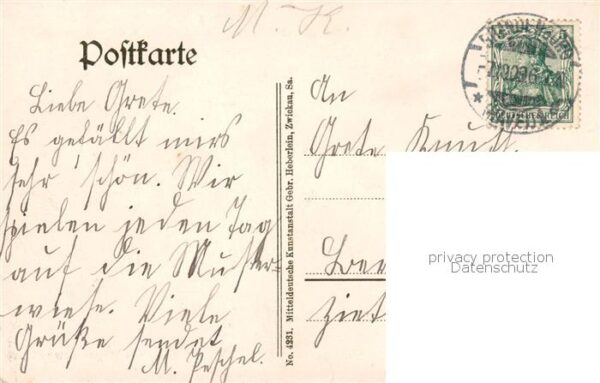 M. K.
Postkarte
Liebe Grete.
Es gefällt mirs
sehr schön. Wir
spielen jeden Tag
auf die Muster-
wiese. Viele
Grüße sendet
M. Peschel.
No. 4231. Mitteldeutsche Kunstanstalt Gebr. Heberlein, Zwickau, Sa.
An
Grete
privacy protection
Datenschutz